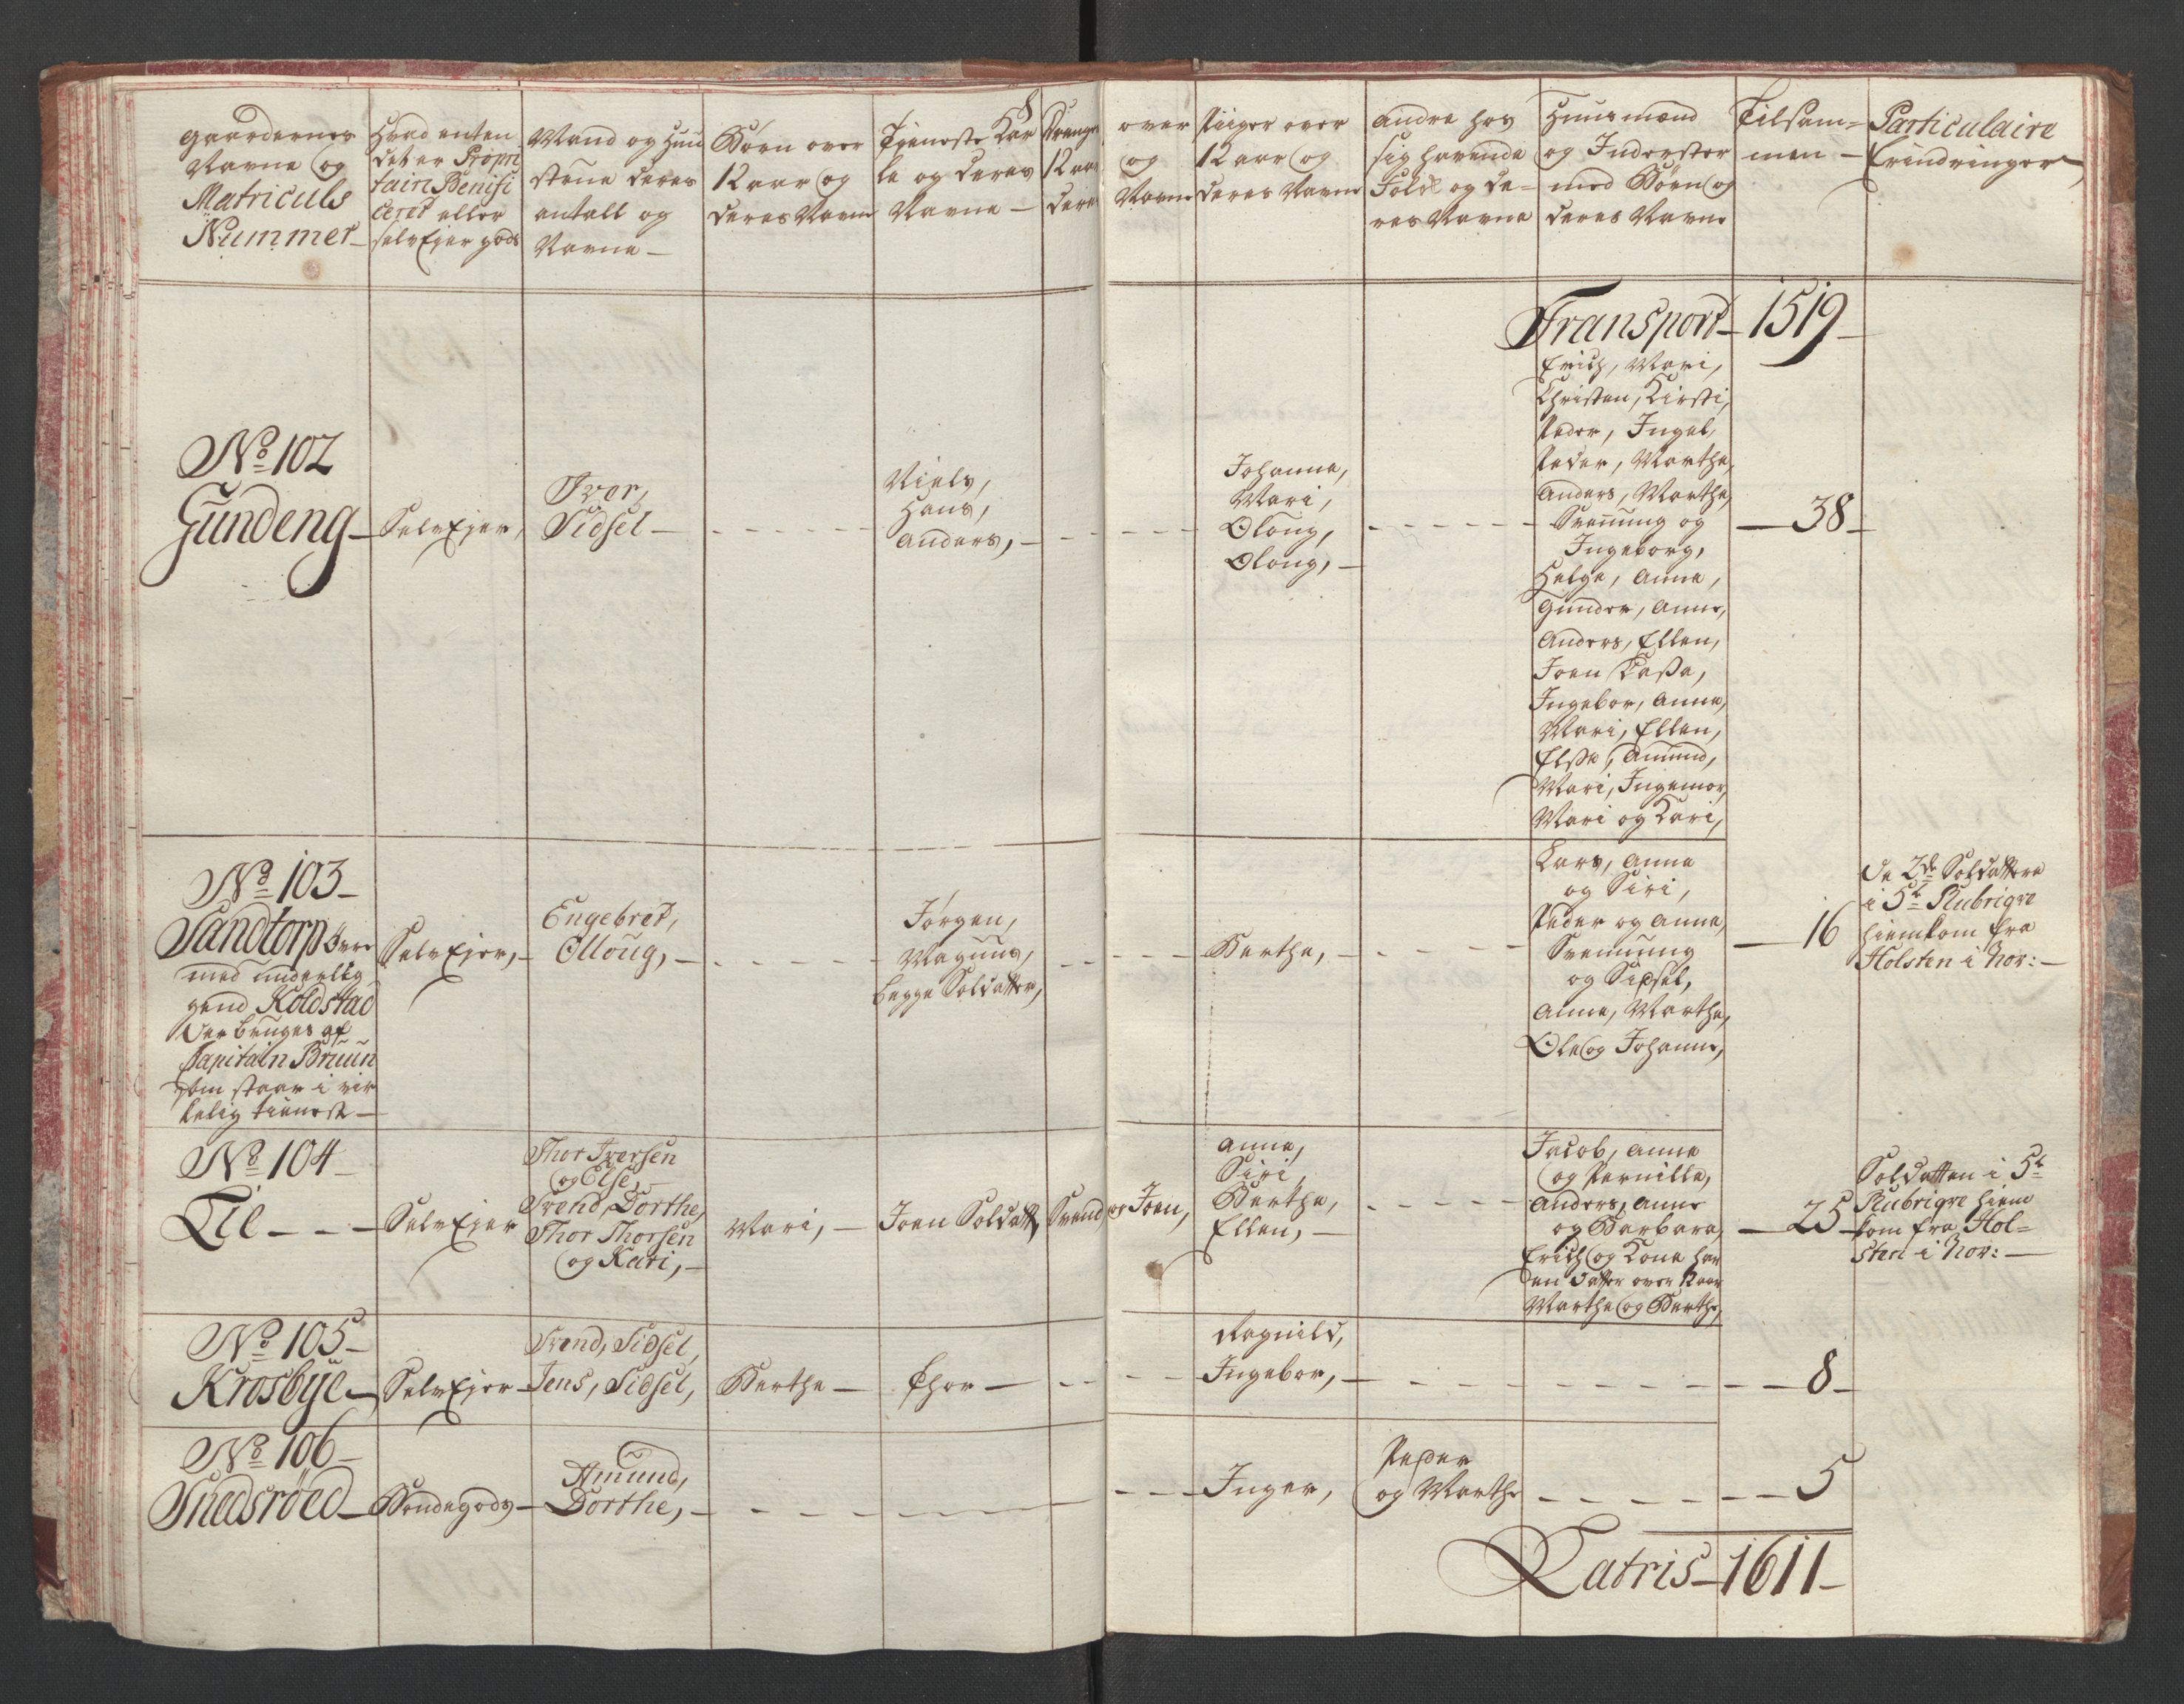 Gaardernes
Navne og
Matriculs
Nummer
Hvad enten
det er Propri
tairt Benifi
ceret eller
selvEjer gods
Mand og Huu
strue deres
antall og
Navne
Børn over
12 aar og
deres Navne
Tieneste Kar
le og deres
Navne
Drenge
12 aar
dere
over
og
Navne
Piiger over
12 aar og
deres Navne
andre hos
sig havende
Folk og de-
res Navne
Huusmænd
og Inderster
med Børn og
deres Navne
Tilsam-
men
Particulaire
Erindringer
Transport 1519
No 102
Gundeng
SelvEjer,
Iver,
Sidsel
Niels,
Hans,
Anders,
Johanna,
Mari,
Oloug,
Oloug,
Erich, Mari,
Christen, Kirsti,
Peder, Ingeb,
Peder, Marthe,
Anders, Marthe,
Svennung og
Ingeborg,
Helge, Anne,
Gunder, Anne,
Anders, Ellen,
Joen
Ingebor, Anne,
Mari, Ellen,
Else, Amund,
Mari, Ingemor,
Mari og Kari,
38
No 103
Sandtorp Øvre
med underlig
gend Koldstad
Der bruges af
Capitain Bruun
som staar i vir
kelig tieneste
SelvEjer,
Engebret,
Olloug,
Jørgen,
Magnus,
begge Soldatter,
Berthe,
Lars, Anne
og Siri,
Peder og Anne,
Svennung
og Sidsel,
Anne, Marthe,
Ole og Johanne,
16
De 2de Soldattere
i 5te Rubrique
hiemkom fra
Holsten i Nov:
No 104
Lie
SelvEjer
Thor Iversen
og Else,
Svend, Dorthe,
Thor Thorsen
og Kari,
Mari,
Joen Soldatt,
Svend og Joen,
Anne,
Siri,
Berthe,
Ellen,
Jacob, Anne
og Pernille,
Anders, Anne
og Barbara,
Erich og Tone har
en datter over 12 aar
Marthe og Berthe,
25
Soldatten i 5te
Rubrique hiem
kom fra Hol-
sten i Nov:
No 105
Krosbye
SelvEjer
Svend, Sidsel,
Jens, Sidsel,
Berthe
Thor
Ragnild,
Ingebor,
8
No 106
Snedsröed
Bondegods
Amund,
Dorthe,
Inger,
Peder
og Marthe
5
Latris 1611